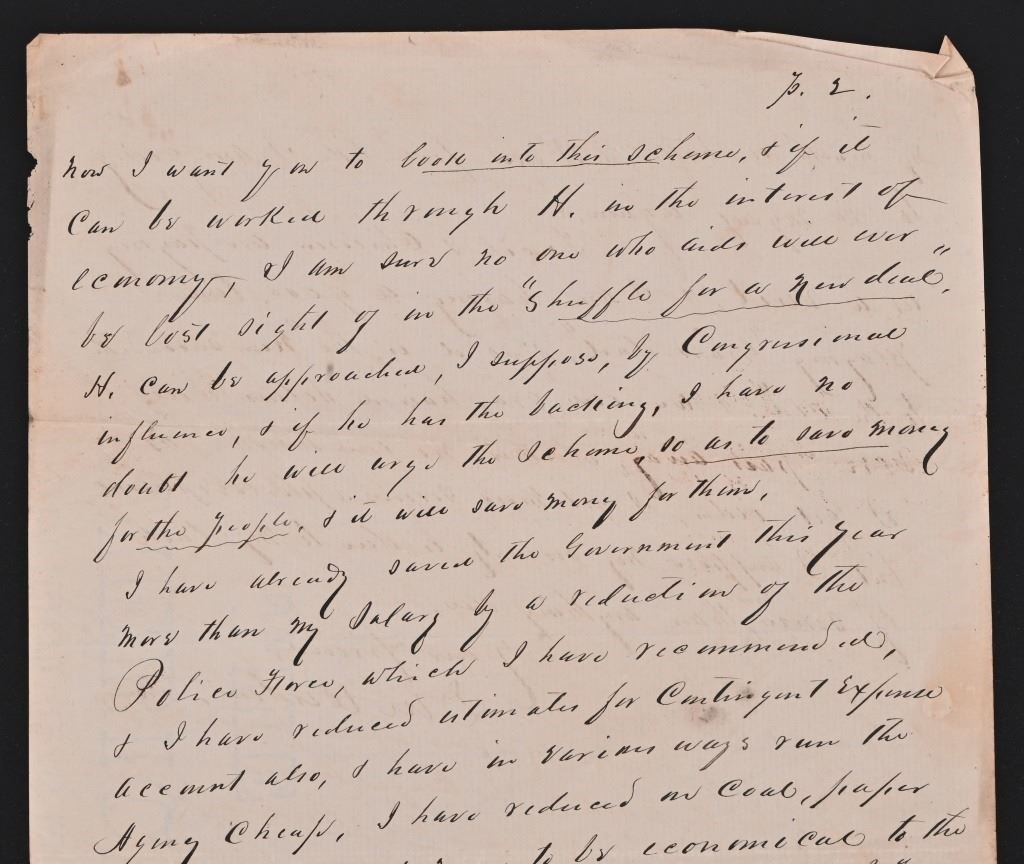 p. 2.
now I want you to look into this scheme, & if it
can be worked through H. in the interest of
economy, I am sure no one who aids will ever
be lost sight of in the "Shuffle for a New deal".
H. can be approached, I suppose, by Congressional
influence, & if he has the backing, I have no
doubt he will urge the Scheme so as to save money
for the people, & it will save money for them.
I have already saved the Government this year
more than my Salary by a reduction of the
Police Force, which I have recommended,
& I have reduced estimates for Contingent Expense
account also, & have in various ways run the
Agency Cheap, I have reduced on Coal, paper
to be economical to the